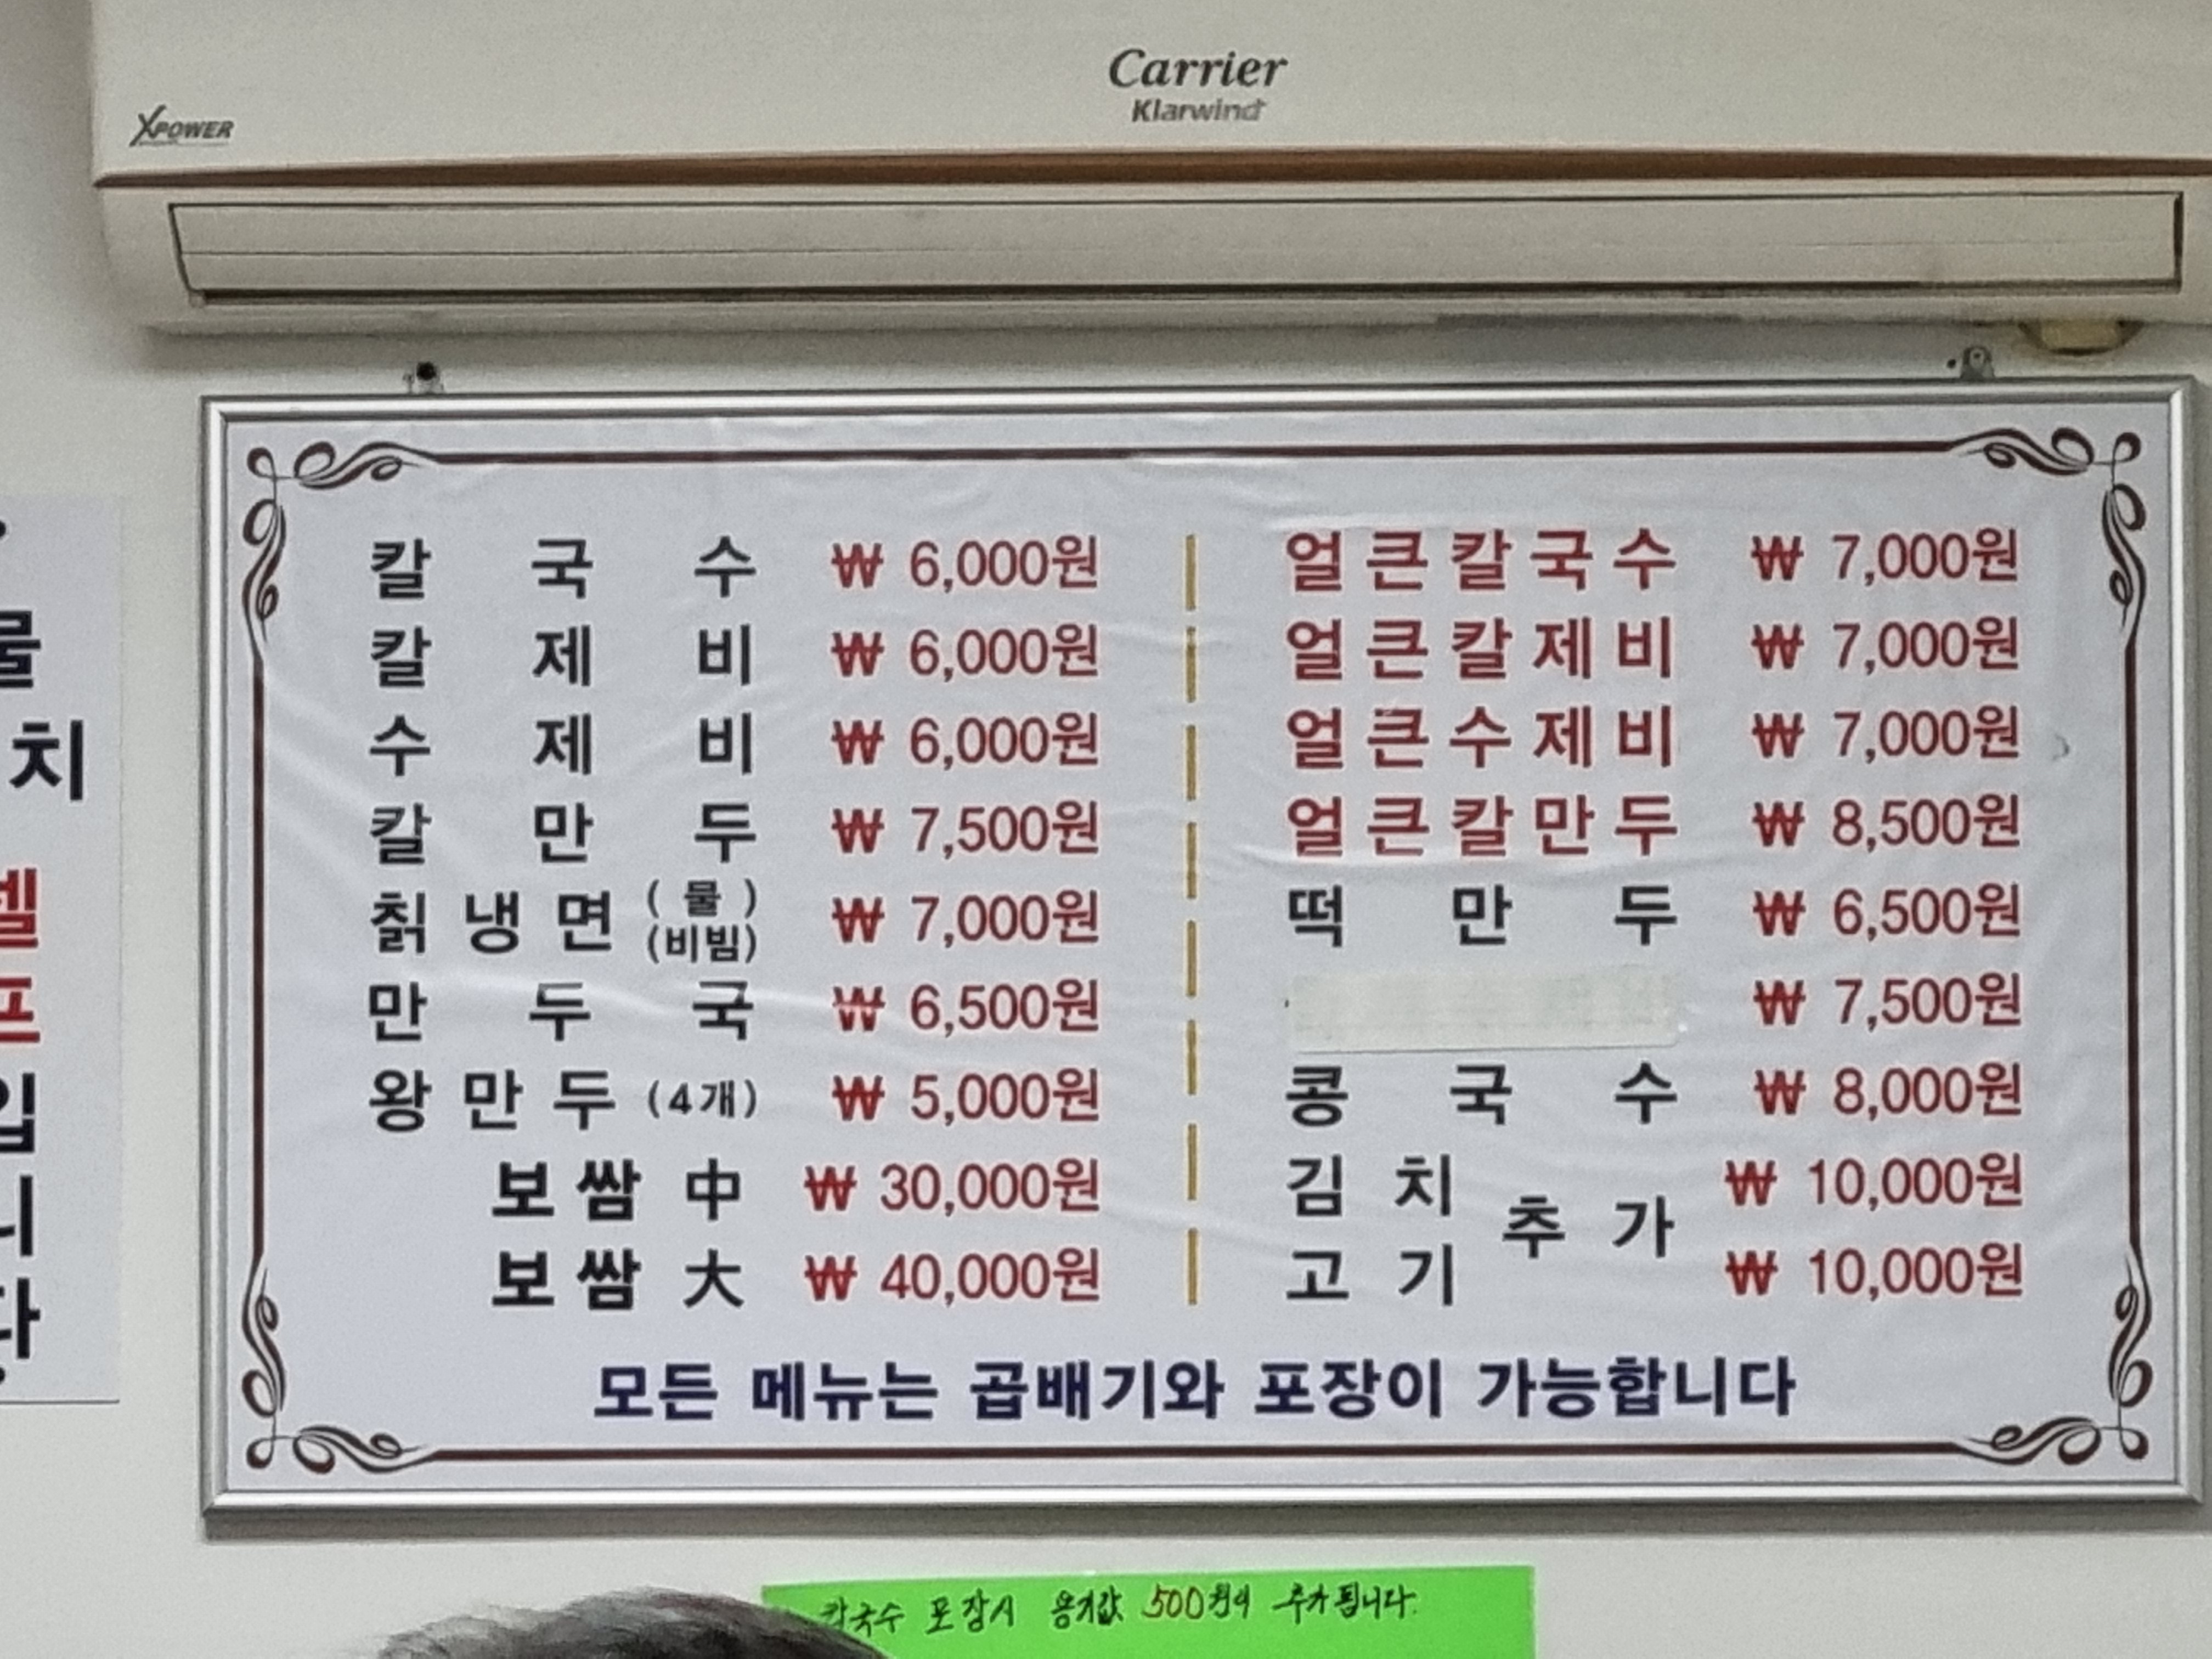 Carrier
Klarwind
XPOWER
칼국수 ₩ 6,000원
칼제비 ₩ 6,000원
수제비 ₩ 6,000원
칼만두 ₩ 7,500원
칡냉면 (물) (비빔) ₩ 7,000원
만두국 ₩ 6,500원
왕만두 (4개) ₩ 5,000원
보쌈 中 ₩ 30,000원
보쌈 大 ₩ 40,000원
얼큰칼국수 ₩ 7,000원
얼큰칼제비 ₩ 7,000원
얼큰수제비 ₩ 7,000원
얼큰칼만두 ₩ 8,500원
떡만두 ₩ 6,500원
₩ 7,500원
콩국수 ₩ 8,000원
김치 추가 ₩ 10,000원
고기 ₩ 10,000원
모든 메뉴는 곱배기와 포장이 가능합니다
칼국수 포장시 용기값 500원이 추가됩니다.
물
치
셀
프
입
니
다